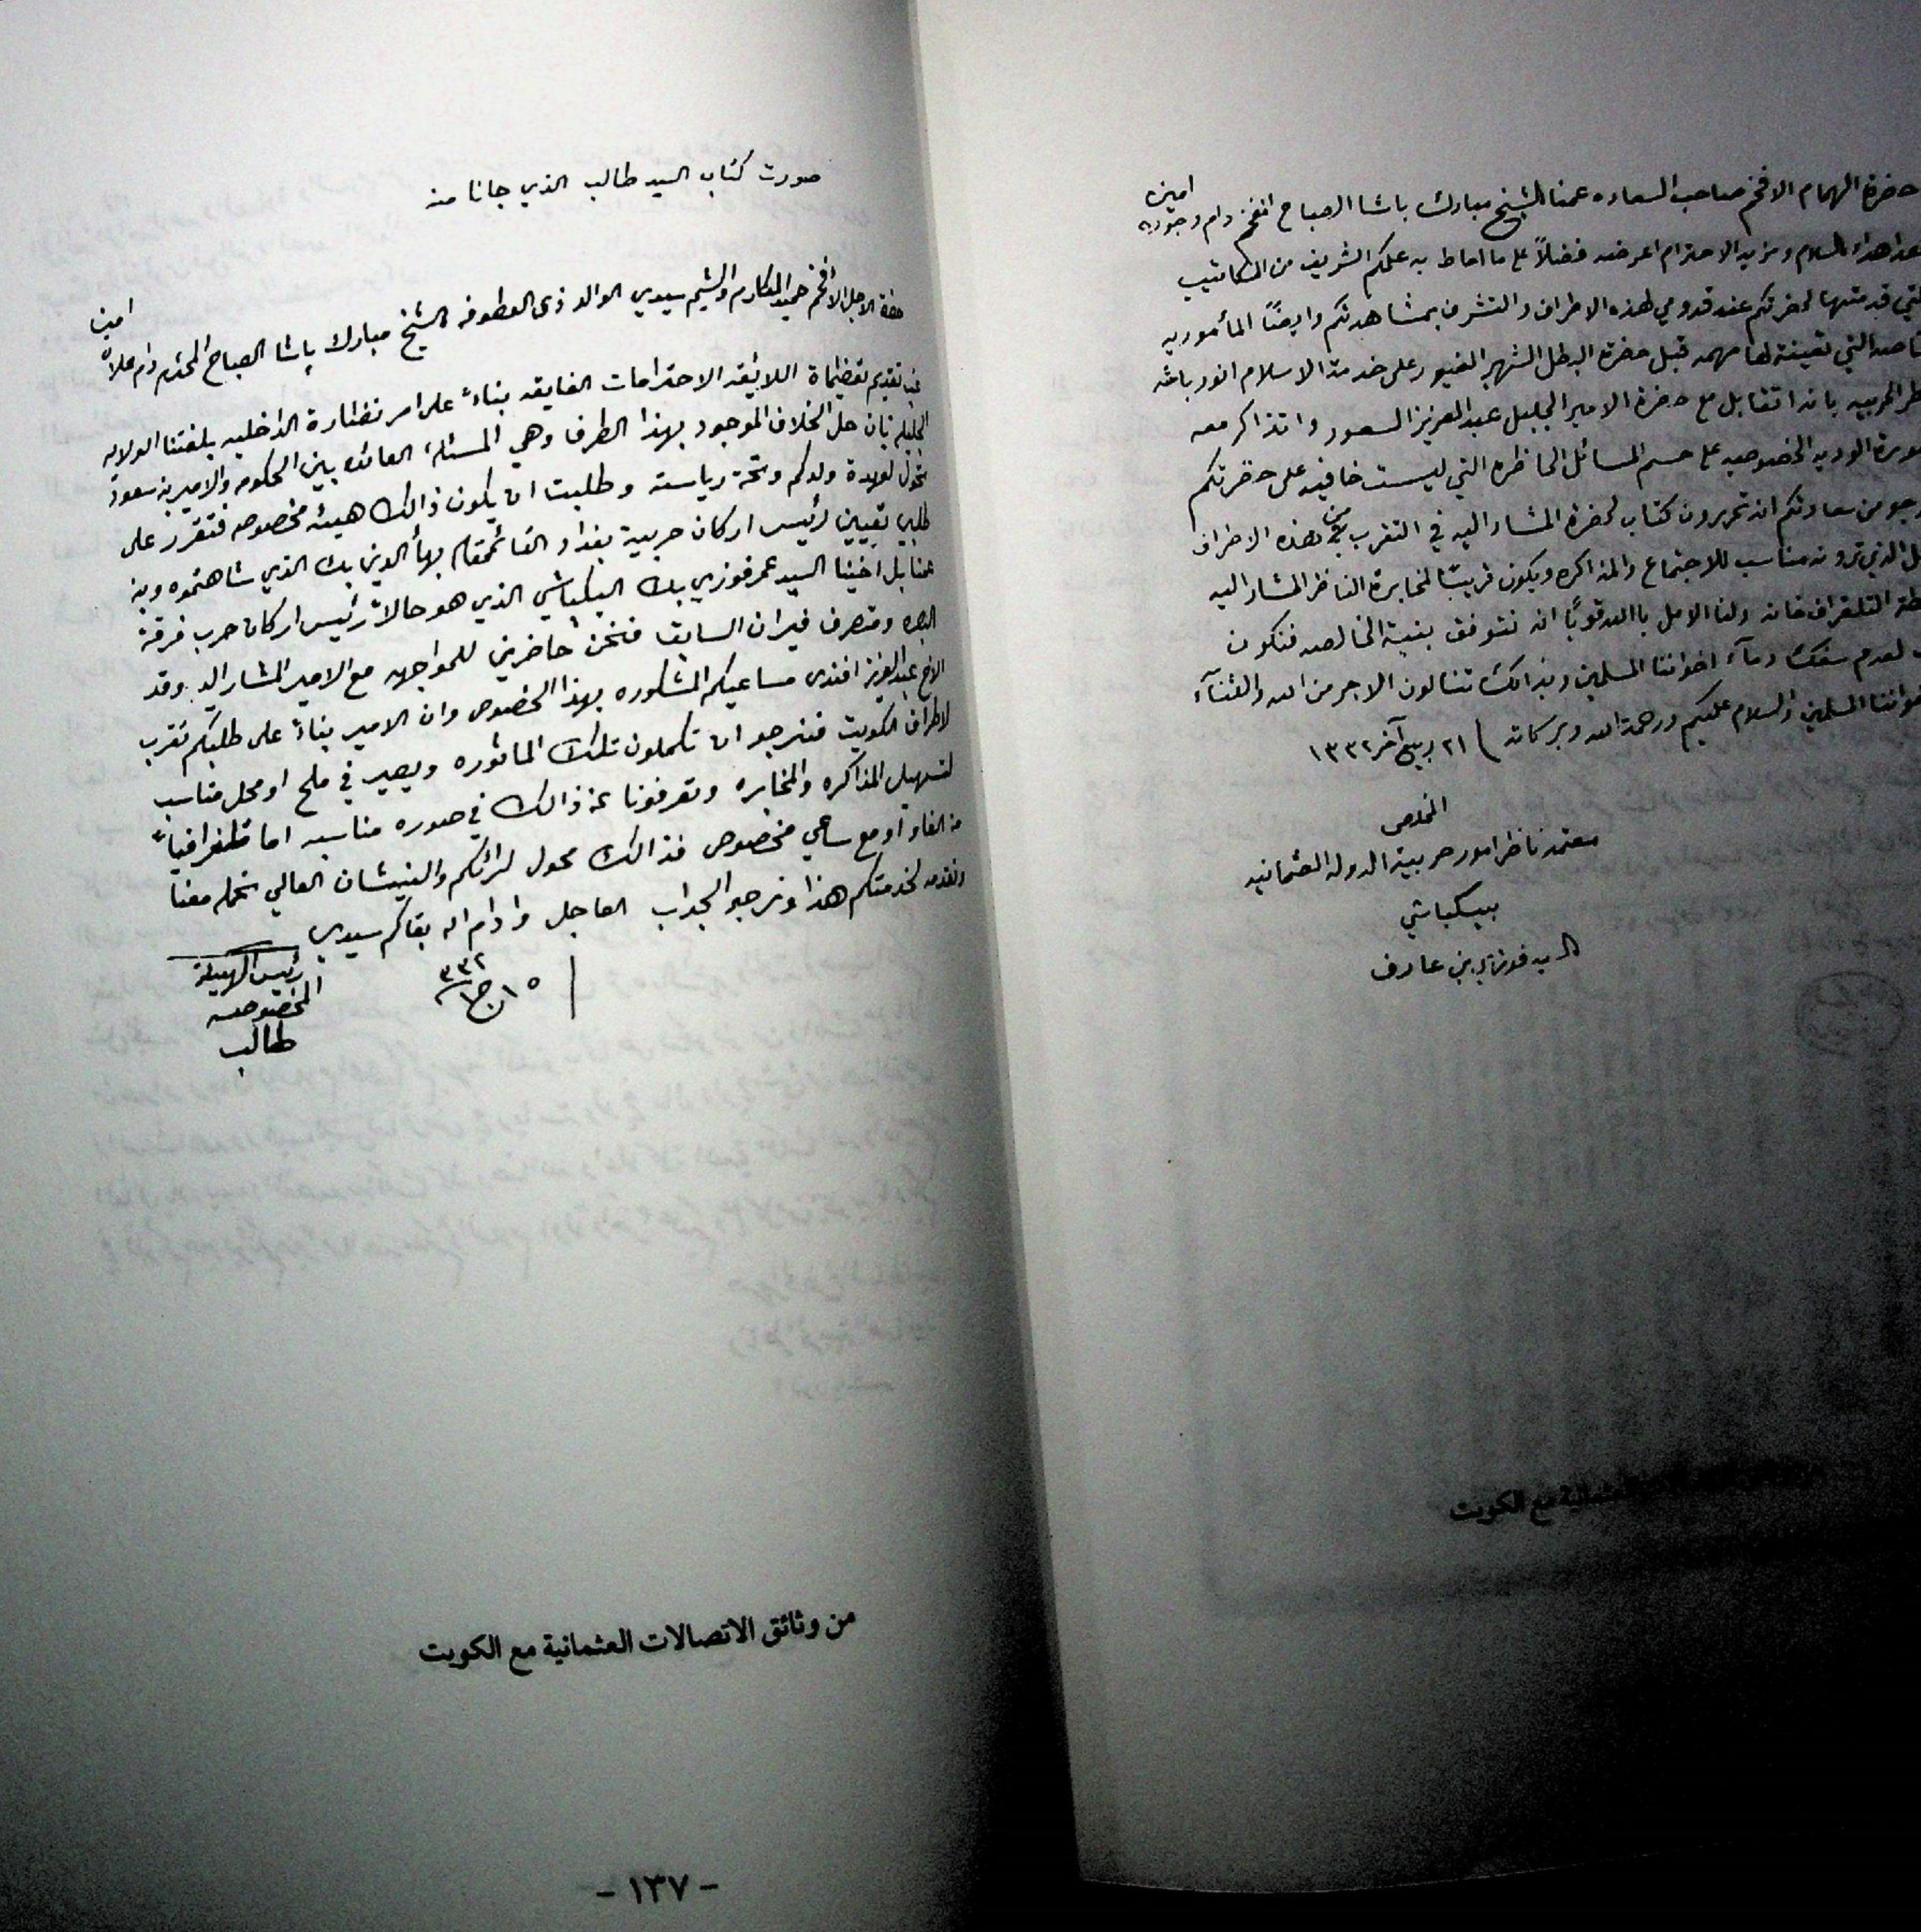 حضرة الهمام الافخم صاحب السعاده عمنا الشيخ مبارك باشا الصباح افخم دام وجوده امين
اهداء السلام ومزيد الاحترام اعرضه فضلاً على ما احاط به علمكم الشريف من المكاتيب
التي قدمتها لحضرتكم عند قدومي لهذه الاطراف والتشرف بمشاهدتكم وايضاً المأموريه
التي تعينة لها مهمه قبل حضرة البطل الشهير الغيور على خدمة الاسلام انور باشه
الحربيه بانه اتقابل مع حضرة الامير الجليل عبدالعزيز السعود واتذاكر معه
صورة الوديه الخصوصيه على حسم المسائل الحاظره التي ليست خافيه على حضرتكم
ارجو من سعادتكم انه تحررون كتاب لحضرة المشار اليه في التقرب من هذه الاطراف
الذي ترونه مناسب للاجتماع والمذاكره ويكون قريباً لمخابرة الناظر المشار اليه
التلغراف خانه ولنا الامل بالله قوياً انه نتوفق بنية الخالصه فنكون
لعدم سفك دمآء اخواننا المسلمين وبذالك تنالون الاجر من الله والثنآء
اخواننا المسلمين والسلام عليكم ورحمة الله وبركاته ) ٢١ ربيع آخر ١٣٣٢
المخلص
معتمد ناظر امور حربية الدولة العثمانيه
بيكباشي
السيد فوزي بن عارف
العثمانية مع الكويت
صورت كتاب السيد طالب الذي جانا منه
حضرة الاجل الافخم حميد المكارم والشيم سيدي الوالد ذي العطوفه الشيخ مبارك باشا الصباح المحترم دام علاه امين
غب تقديم تعظيماة اللائيقه الاحترامات الفايقه بناءً على امر نظارة الداخليه بلغتنا الولايه
الجليله بان حل الخلاف الموجود بهذا الطرف وهي المسئلة العائده بين الحكومه والامير بن سعود
تحول لعهدة ولدكم وتحة رياسته وطلبت ان يكون ذالك هيئه مخصوصه فتقرر على
طلبي تعيين رئيس اركان حربية بغداد القائممقام بهأ الدين بك الذي شاهتموه وبنه
عنا بل اخينا السيد عمر فوزي بك البكباشي الذي هو حالاً رئيس اركان حرب فرقة
البصره ومتصرف فيران السابق فنحن حاضرين للمواجهه مع الامير المشار اليه وقد
الاخ عبدالعزيز افندي مساعيكم المشكوره بهذا الخصوص وان الامير بناءً على طلبكم تقرب
لاطراف الكويت فنرجو ان تكملون تلك المائوره ويصير في ملح او محل مناسب
لتسهيل المذاكره والمخابره وتعرفونا عن ذالك في صوره مناسبه اما تلغرافياً
من الفاو او مع ساعي مخصوص فذالك محول لرائكم والنيشان العالي نحمله معنا
ونقدمه لخدمتكم هذا ونرجو الجواب العاجل وادام اله بقاكم سيدي
١٥ ج١ ٣٣٢
رئيس الهيئة
المخصوصه
طالب
من وثائق الاتصالات العثمانية مع الكويت
- ١٣٧ -